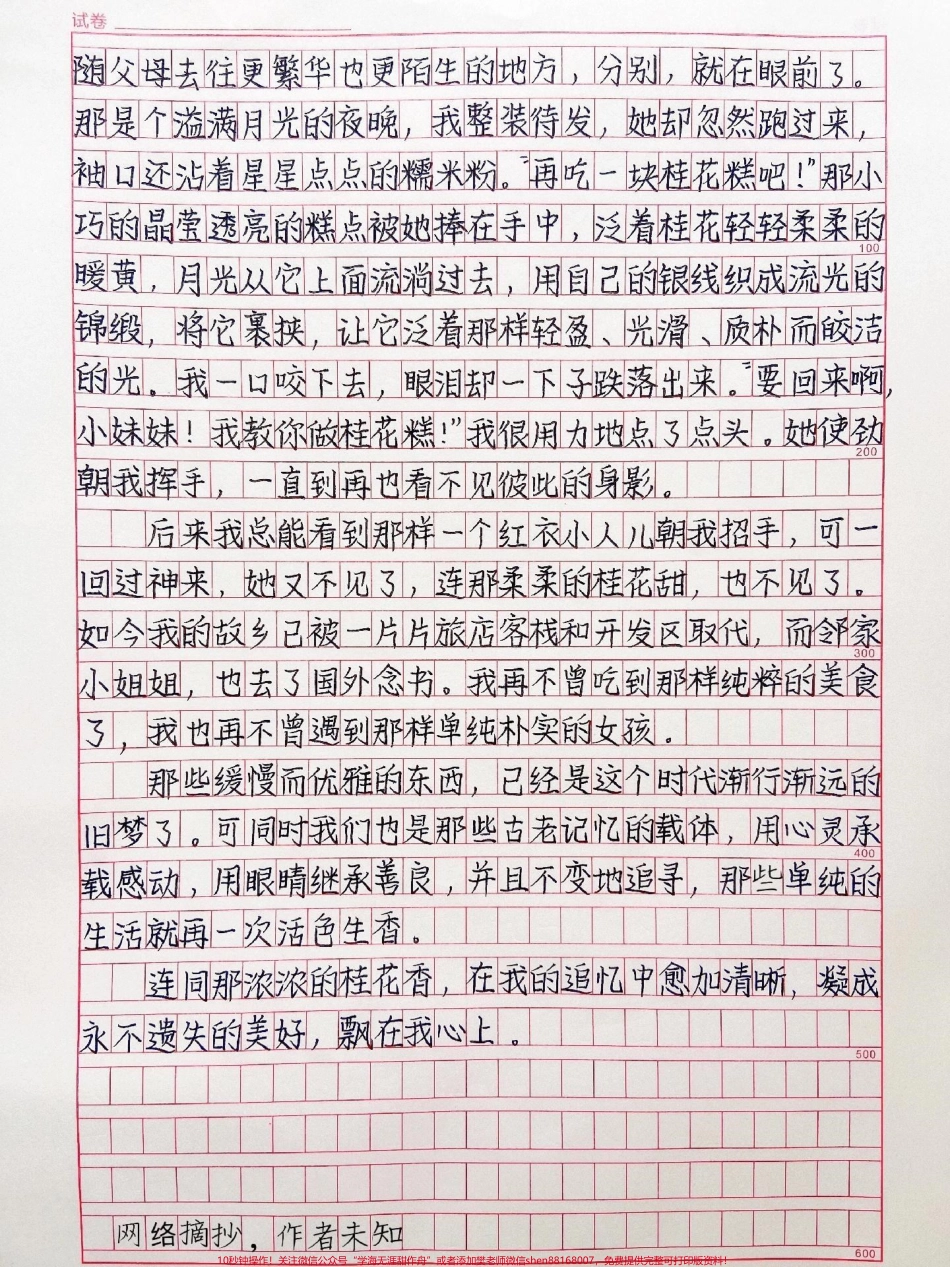 试卷
随父母去往更繁华也更陌生的地方，分别，就在眼前了。
那是个溢满月光的夜晚，我整装待发，她却忽然跑过来，
袖口还沾着星星点点的糯米粉。“再吃一块桂花糕吧！”那小
巧的晶莹透亮的糕点被她捧在手中，泛着桂花轻轻柔柔的
100
暖黄，月光从它上面流淌过去，用自己的银线织成流光的
锦缎，将它裹挟，让它泛着那样轻盈、光滑、质朴而皎洁
的光。我一口咬下去，眼泪却一下子跌落出来。“要回来啊，
小妹妹！我教你做桂花糕！”我很用力地点了点头。她使劲
200
朝我挥手，一直到再也看不见彼此的身影。
后来我总能看到那样一个红衣小人儿朝我招手，可一
回过神来，她又不见了，连那柔柔的桂花甜，也不见了。
如今我的故乡已被一片片旅店客栈和开发区取代，而邻家
300
小姐姐，也去了国外念书。我再不曾吃到那样纯粹的美食
了，我也再不曾遇到那样单纯朴实的女孩。
那些缓慢而优雅的东西，已经是这个时代渐行渐远的
旧梦了。可同时我们也是那些古老记忆的载体，用心灵承
400
载感动，用眼睛继承善良，并且不变地追寻，那些单纯的
生活就再一次活色生香。
连同那浓浓的桂花香，在我的追忆中愈加清晰，凝成
永不遗失的美好，飘在我心上。
500
网络摘抄，作者未知
600
10秒钟操作！关注微信公众号“学海无涯甜作舟”或者添加樊老师微信shen88168007，免费提供完整可打印版资料！